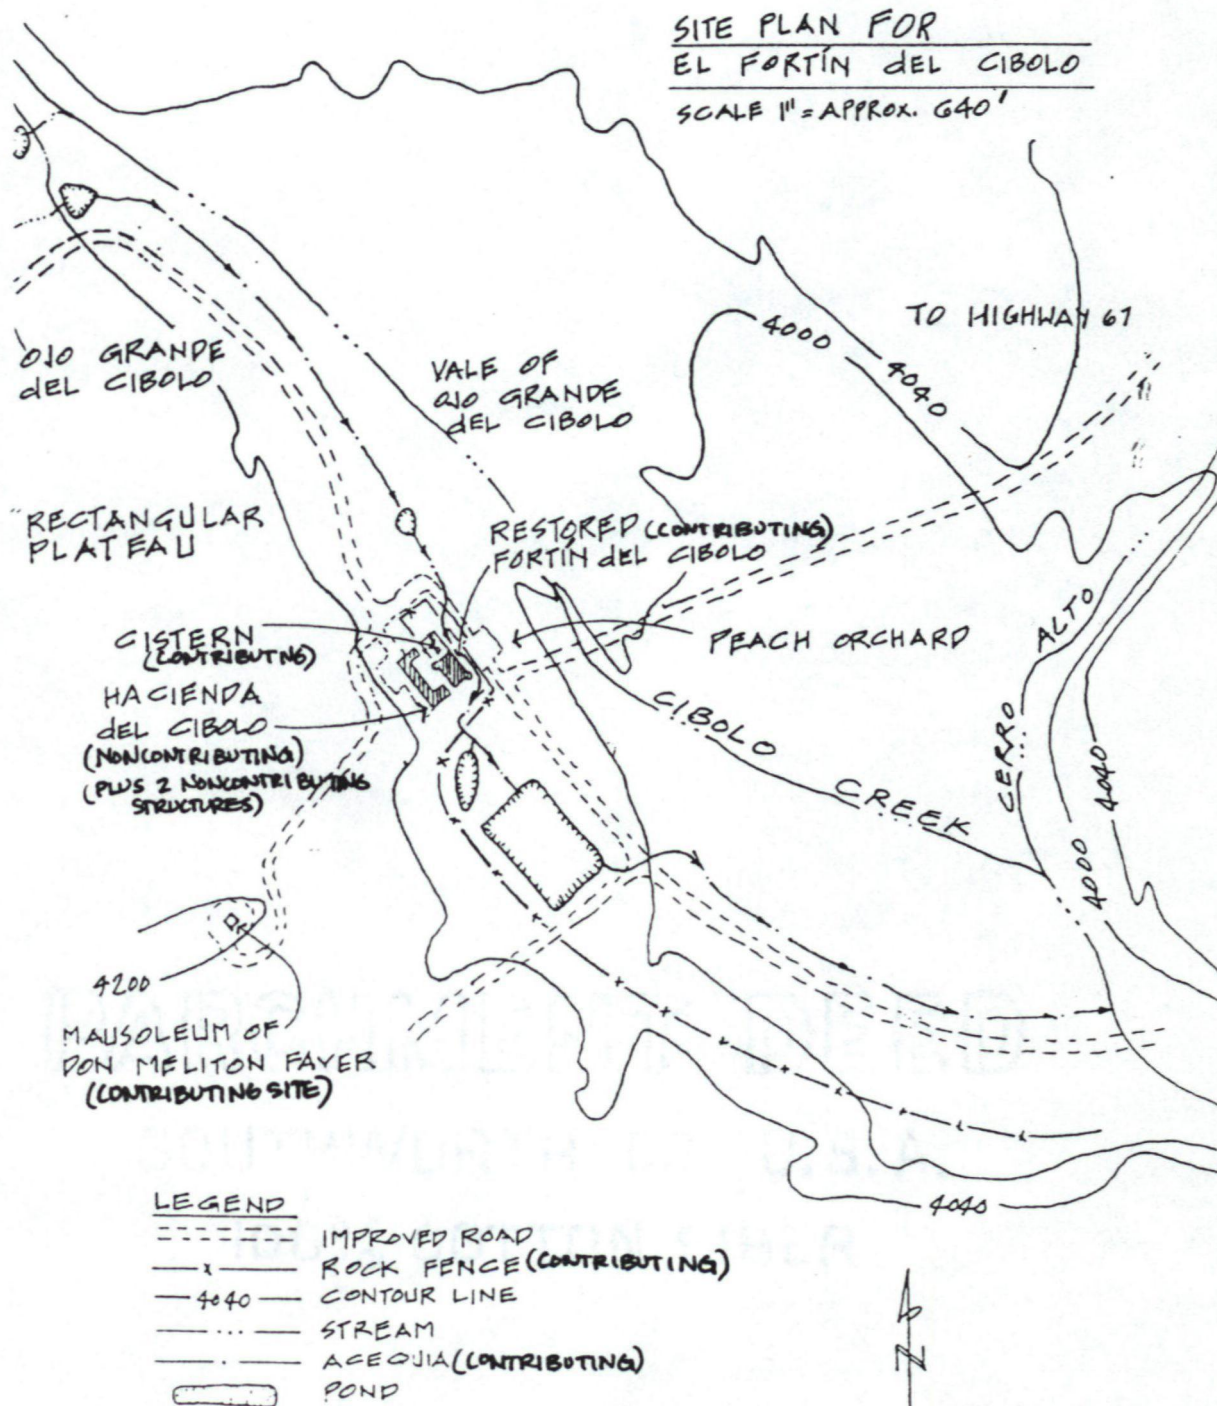 SITE PLAN FOR
EL FORTÍN del CIBOLO
SCALE 1" = APPROX. 640'
TO HIGHWAY 67
4000
4040
OJO GRANDE
del CIBOLO
VALE OF
OJO GRANDE
del CIBOLO
RECTANGULAR
PLATEAU
RESTORED (CONTRIBUTING)
FORTÍN del CIBOLO
CISTERN
(CONTRIBUTNG)
PEACH ORCHARD
HACIENDA
del CIBOLO
(NONCONTRIBUTING)
(PLUS 2 NONCONTRIBUTING
STRUCTURES)
CIBOLO CREEK
CERRO ALTO
4040
4000
4200
MAUSOLEUM OF
DON MELITON FAVER
(CONTRIBUTING SITE)
4040
LEGEND
IMPROVED ROAD
x ROCK FENCE (CONTRIBUTING)
4040 CONTOUR LINE
STREAM
ACEQUIA (CONTRIBUTING)
POND
N